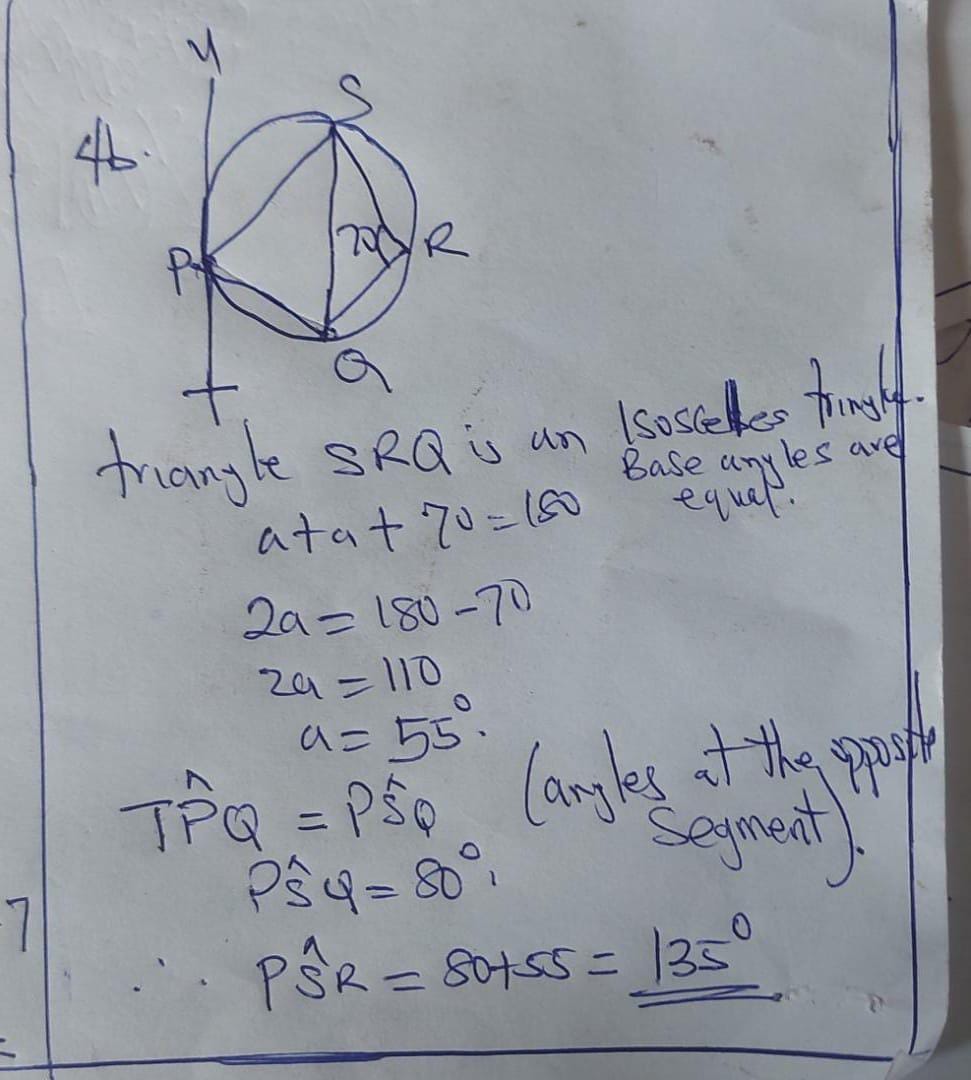 y
S
4b.
70
R
P
Q
T
triangle SRQ is an Isosceles tringle.
Base angles are
equal.
a+a+ 70=180
2a= 180-70
2a = 110
a= 55°.
TP̂Q = PŜQ (angles at the opposite
segment).
PŜQ= 80°.
7
∴ PŜR = 80+55 = 135°